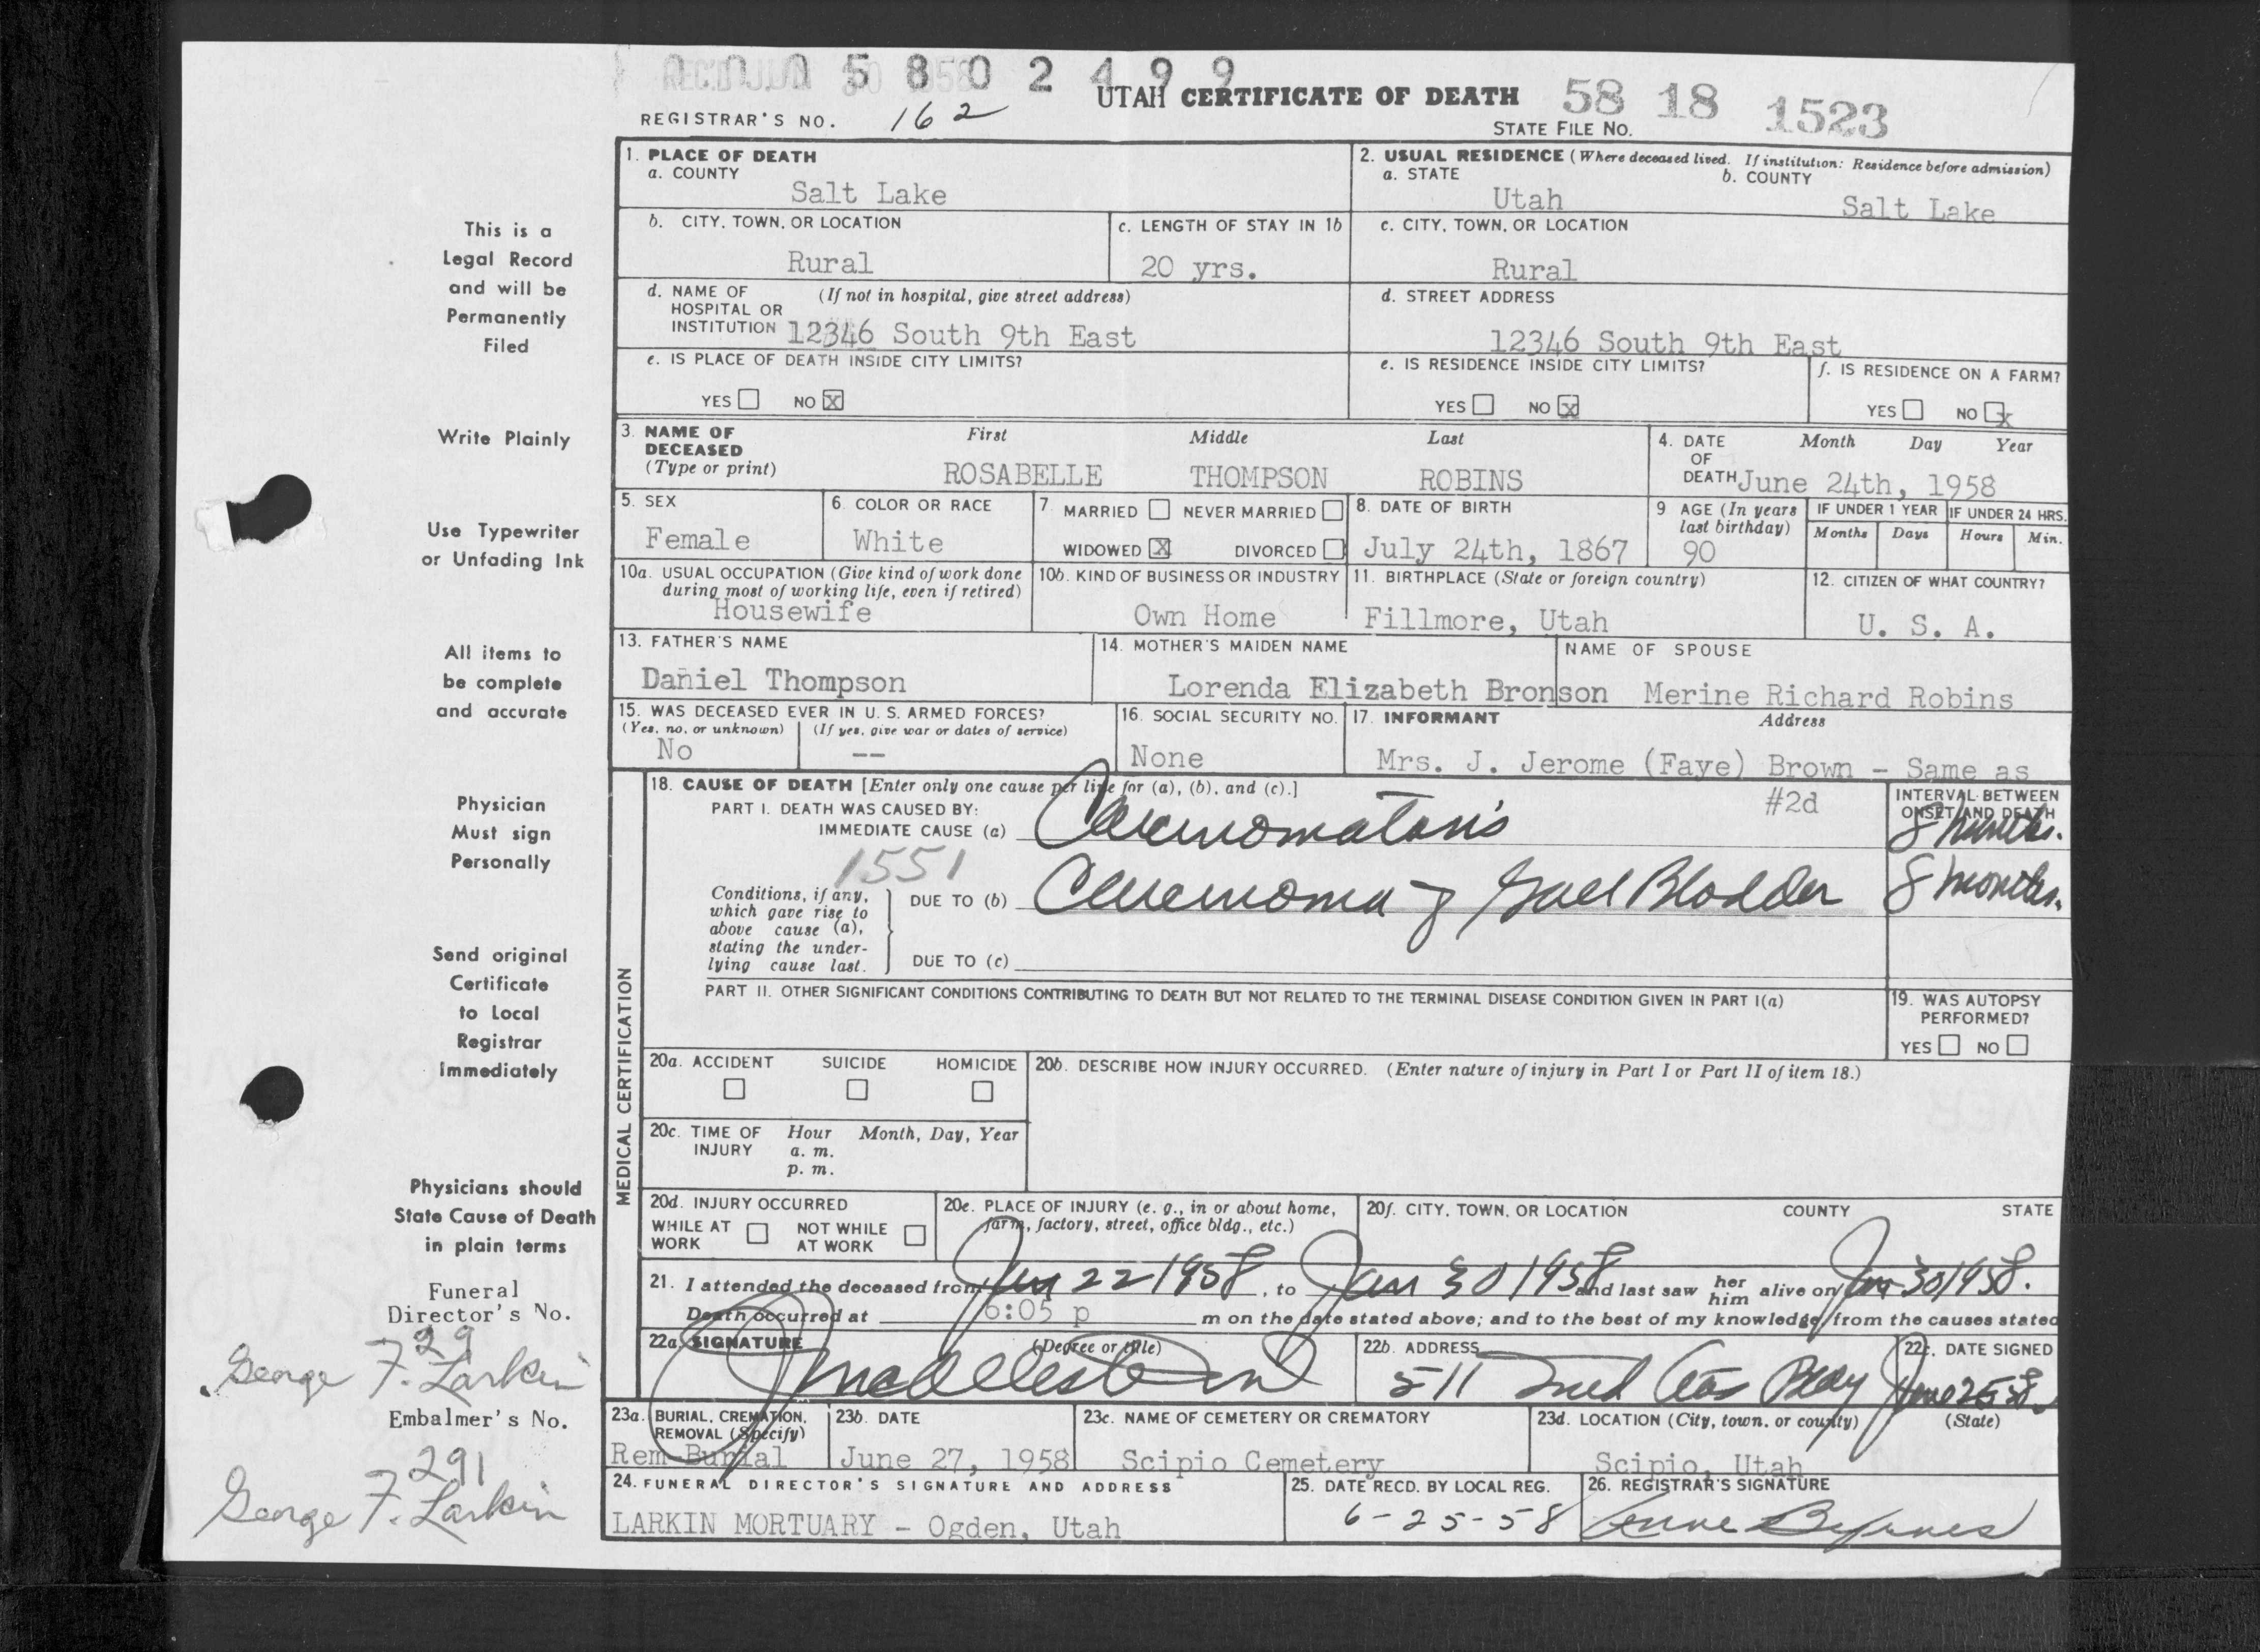 REC'D JUN 30 1958
5 8 0 2 4 9 9
UTAH CERTIFICATE OF DEATH 58 18 1523
REGISTRAR'S NO. 162
STATE FILE NO.
1. PLACE OF DEATH
a. COUNTY
Salt Lake
2. USUAL RESIDENCE (Where deceased lived. If institution: Residence before admission)
a. STATE b. COUNTY
Utah Salt Lake
b. CITY, TOWN, OR LOCATION
Rural
c. LENGTH OF STAY IN 1b
20 yrs.
c. CITY, TOWN, OR LOCATION
Rural
d. NAME OF (If not in hospital, give street address)
HOSPITAL OR
INSTITUTION 12346 South 9th East
d. STREET ADDRESS
12346 South 9th East
e. IS PLACE OF DEATH INSIDE CITY LIMITS?
YES NO X
e. IS RESIDENCE INSIDE CITY LIMITS?
YES NO X
f. IS RESIDENCE ON A FARM?
YES NO X
3. NAME OF DECEASED (Type or print)
First Middle Last
ROSABELLE THOMPSON ROBINS
4. DATE OF DEATH
Month Day Year
June 24th, 1958
5. SEX
Female
6. COLOR OR RACE
White
7. MARRIED NEVER MARRIED
WIDOWED X DIVORCED
8. DATE OF BIRTH
July 24th, 1867
9 AGE (In years last birthday)
90
IF UNDER 1 YEAR IF UNDER 24 HRS.
Months Days Hours Min.
10a. USUAL OCCUPATION (Give kind of work done
during most of working life, even if retired)
Housewife
10b. KIND OF BUSINESS OR INDUSTRY
Own Home
11. BIRTHPLACE (State or foreign country)
Fillmore, Utah
12. CITIZEN OF WHAT COUNTRY?
U. S. A.
13. FATHER'S NAME
Daniel Thompson
14. MOTHER'S MAIDEN NAME
Lorenda Elizabeth Bronson
NAME OF SPOUSE
Merine Richard Robins
15. WAS DECEASED EVER IN U. S. ARMED FORCES?
(Yes, no, or unknown) (If yes, give war or dates of service)
No --
16. SOCIAL SECURITY NO.
None
17. INFORMANT Address
Mrs. J. Jerome (Faye) Brown - Same as
#2d
MEDICAL CERTIFICATION
18. CAUSE OF DEATH [Enter only one cause per line for (a), (b), and (c).]
PART I. DEATH WAS CAUSED BY:
IMMEDIATE CAUSE (a) Carcinomatosis
INTERVAL BETWEEN
ONSET AND DEATH
8 months.
1551
Conditions, if any,
which gave rise to
above cause (a),
stating the under-
lying cause last.
DUE TO (b) Carcinoma of Gall Bladder 8 months.
DUE TO (c)
PART II. OTHER SIGNIFICANT CONDITIONS CONTRIBUTING TO DEATH BUT NOT RELATED TO THE TERMINAL DISEASE CONDITION GIVEN IN PART I(a)
19. WAS AUTOPSY
PERFORMED?
YES NO
20a. ACCIDENT SUICIDE HOMICIDE
20b. DESCRIBE HOW INJURY OCCURRED. (Enter nature of injury in Part I or Part II of item 18.)
20c. TIME OF INJURY
Hour Month, Day, Year
a. m.
p. m.
20d. INJURY OCCURRED
WHILE AT WORK NOT WHILE AT WORK
20e. PLACE OF INJURY (e. g., in or about home,
farm, factory, street, office bldg., etc.)
20f. CITY, TOWN, OR LOCATION COUNTY STATE
21. I attended the deceased from Jan 22 1958, to Jan 30 1958 and last saw her him alive on Jan 30 1958.
Death occurred at 6:05 p m on the date stated above; and to the best of my knowledge, from the causes stated
22a. SIGNATURE (Degree or title)
22b. ADDRESS
511
22c. DATE SIGNED
June 25 58
23a. BURIAL, CREMATION,
REMOVAL (Specify)
Rem-Burial
23b. DATE
June 27, 1958
23c. NAME OF CEMETERY OR CREMATORY
Scipio Cemetery
23d. LOCATION (City, town, or county) (State)
Scipio, Utah
24. FUNERAL DIRECTOR'S SIGNATURE AND ADDRESS
LARKIN MORTUARY - Ogden, Utah
25. DATE RECD. BY LOCAL REG.
6-25-58
26. REGISTRAR'S SIGNATURE
Anne Byrnes
This is a
Legal Record
and will be
Permanently
Filed
Write Plainly
Use Typewriter
or Unfading Ink
All items to
be complete
and accurate
Physician
Must sign
Personally
Send original
Certificate
to Local
Registrar
Immediately
Physicians should
State Cause of Death
in plain terms
Funeral
Director's No.
29
George F. Larkin
Embalmer's No.
291
George F. Larkin